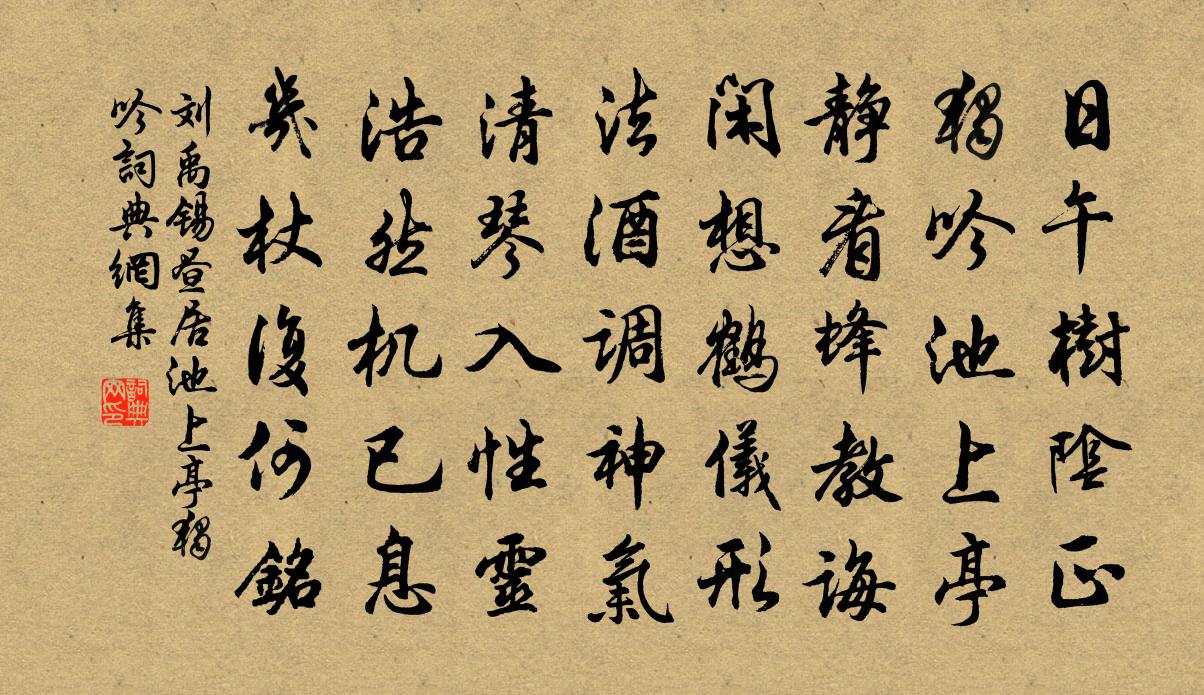 日午樹陰正
獨吟池上亭
靜看蜂教誨
閑想鶴儀形
法酒調神氣
清琴入性靈
浩然机已息
幾杖復何銘
刘禹錫晝居池上亭獨
吟詞典網集
詞典
网印